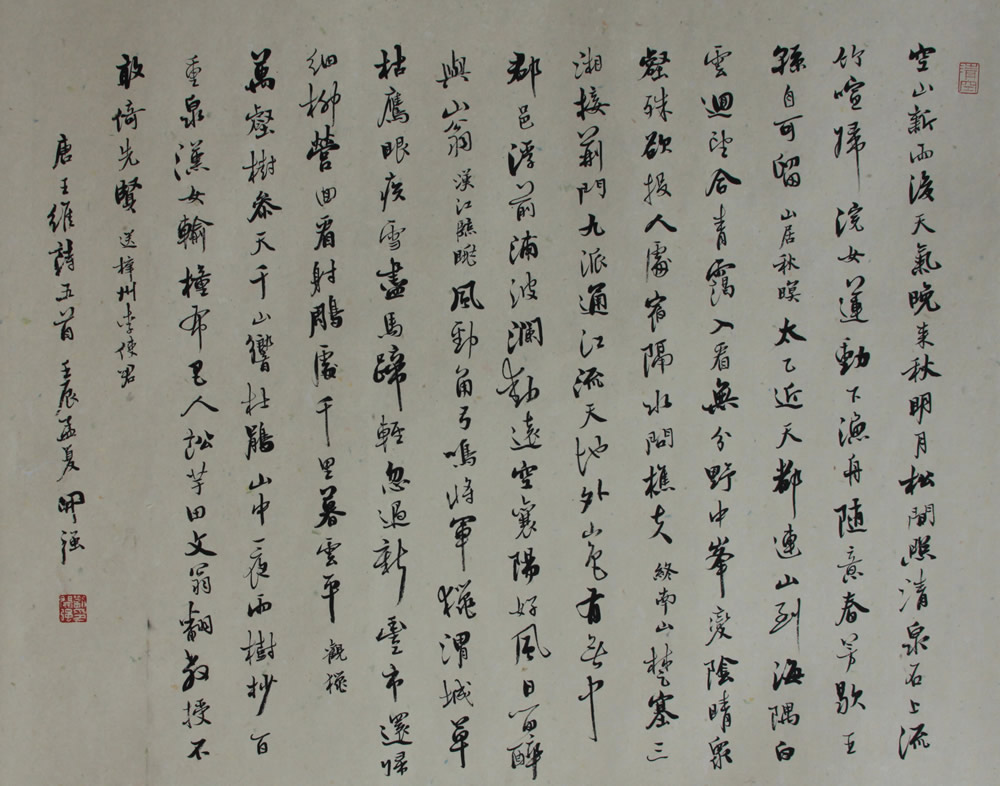 空山新雨後天氣晚来秋明月松間照清泉石上流
竹喧歸浣女蓮動下漁舟随意春芳歇王
孫自可留山居秋暝太乙近天都連山到海隅白
雲迴望合青靄入看無分野中峯變陰晴衆
壑殊欲投人處宿隔水問樵夫終南山楚塞三
湘接荊門九派通江流天地外山色有無中
郡邑浮前浦波瀾動遠空襄陽好風日留醉
與山翁漢江臨眺風勁角弓鳴將軍獵渭城草
枯鷹眼疾雪盡馬蹄輕忽過新豐市還歸
細柳營回看射鵰處千里暮雲平觀獵
萬壑樹參天千山響杜鵑山中一夜雨樹杪百
重泉漢女輸橦布巴人訟芋田文翁翻教授不
敢倚先賢送梓州李使君
唐王維詩五首壬辰孟夏